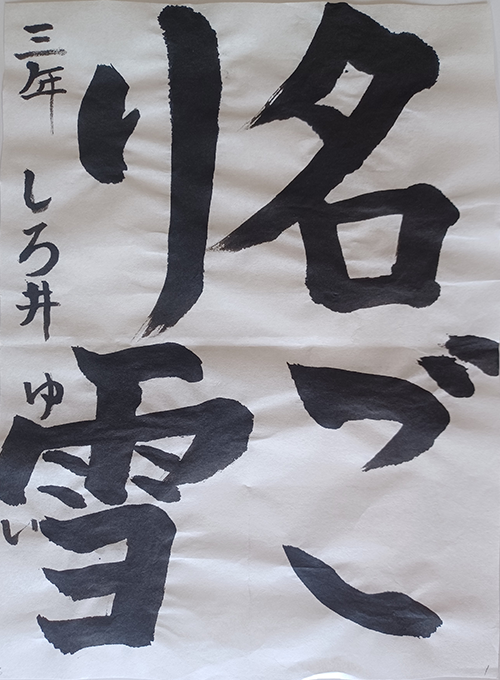 名ご
り雪
三年 しろ井 ゆい